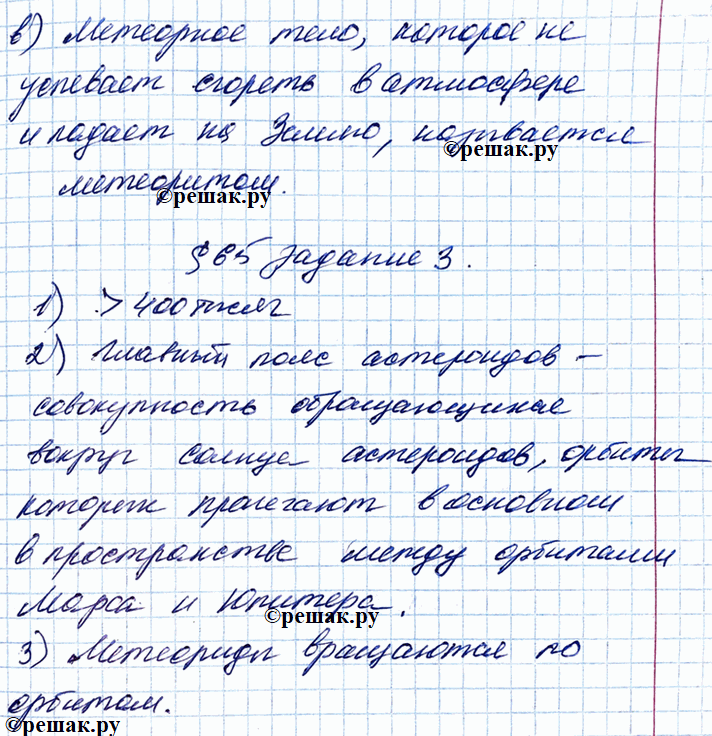 в) Метеорное тело, которое не
успевает сгореть в атмосфере
и падает на Землю, называется
©решак.ру
метеоритом.
©решак.ру
§65 Задание 3.
1) >400 тысяч
2) Главный пояс астероидов –
совокупность обращающихся
вокруг солнца астероидов, орбиты
которых пролегают в основном
в пространстве между орбитами
Марса и Юпитера.
©решак.ру
3) Метеориды вращаются по
орбитам.
©решак.ру